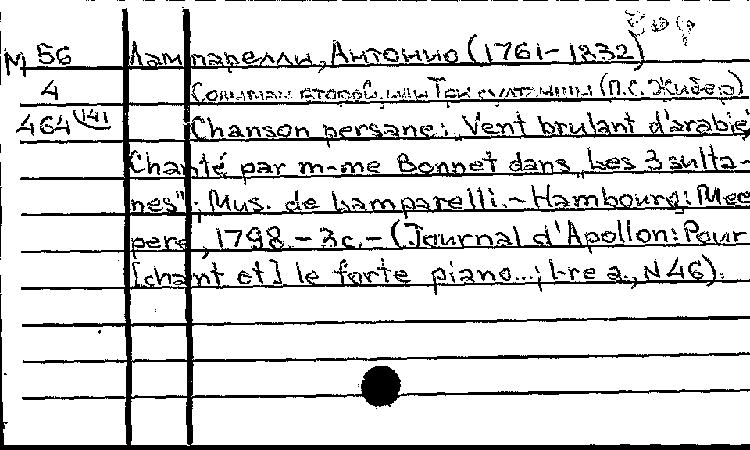 М 56 Лампарелли, Антонио (1761-1832)
4 Солиман второй, или Три султанши (П.С. Жибер)
464 (141 Chanson persane: „Vent brulant d'arabie"
Chanté par m-me Bonnet dans „Les 3 sulta-
nes"; Mus. de Lamparelli. - Hambourg: Mee
pere, 1798. - 3c. - (Journal d'Apollon: Pour
[chant et] le forte piano...; 1-re a., N46).